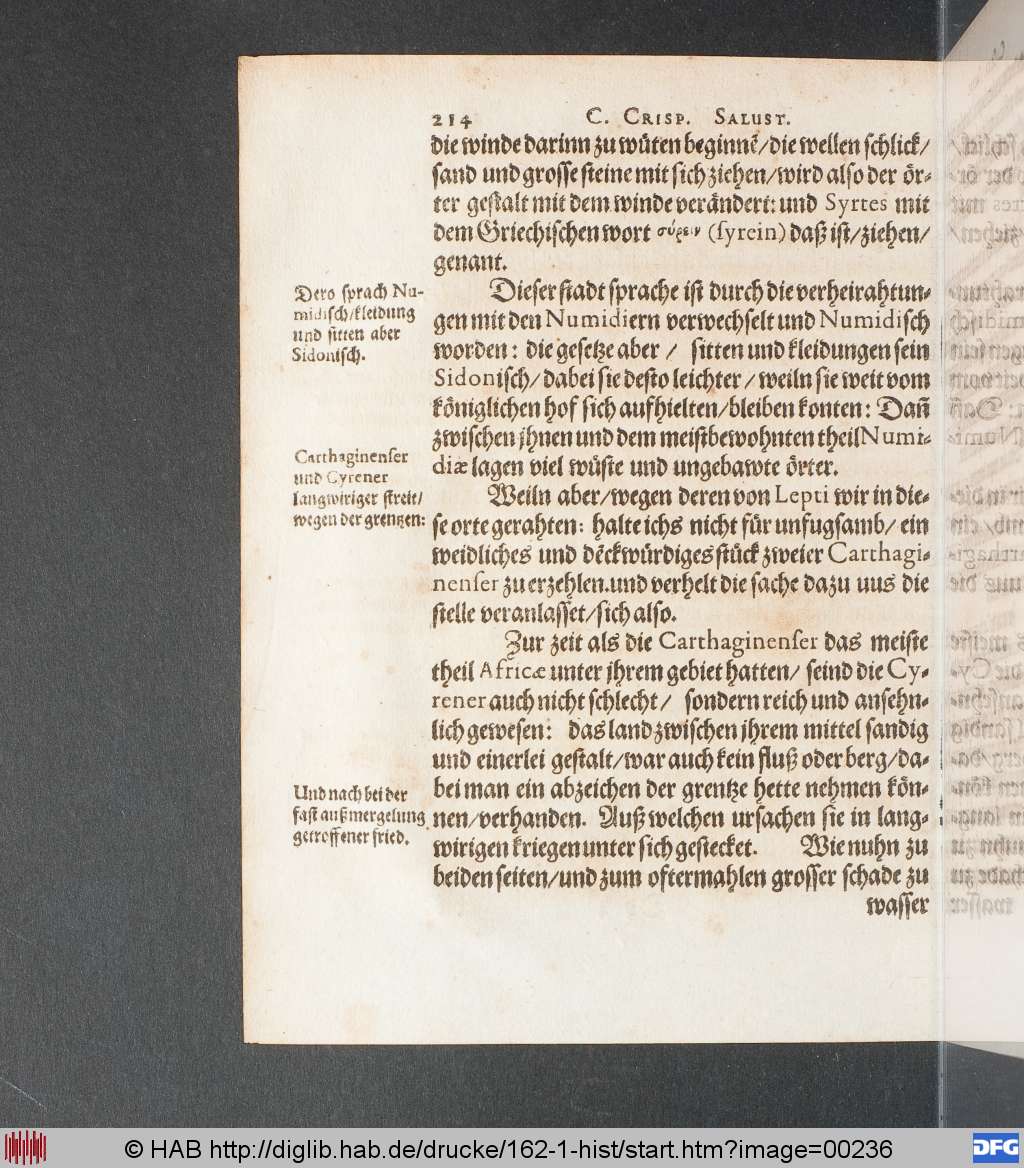 214 C. CRISP. SALUST.
die winde darinn zu wüten beginnẽ/die wellen schlick/
sand und grosse steine mit sich ziehen/wird also der ör-
ter gestalt mit dem winde verändert: und Syrtes mit
dem Griechischen wort σύρειν (syrein) daß ist/ziehen/
genant.
Dero sprach Nu-
midisch/kleidung
und sitten aber
Sidonisch.
Dieser stadt sprache ist durch die verheirahtun-
gen mit den Numidiern verwechselt und Numidisch
worden: die gesetze aber / sitten und kleidungen sein
Sidonisch/dabei sie desto leichter/weiln sie weit vom
königlichen hof sich aufhielten/bleiben konten: Dañ
zwischen jhnen und dem meistbewohnten theil Numi-
diæ lagen viel wüste und ungebawte örter.
Carthaginenser
und Cyrener
langwiriger streit/
wegen der grentzen:
Weiln aber/wegen deren von Lepti wir in die-
se orte gerahten: halte ichs nicht für unfugsamb/ ein
weidliches und dẽckwürdiges stück zweier Carthagi-
nenser zu erzehlen.und verhelt die sache dazu uus die
stelle veranlasset/sich also.
Zur zeit als die Carthaginenser das meiste
theil Africæ unter jhrem gebiet hatten/ seind die Cy-
rener auch nicht schlecht/ sondern reich und ansehn-
lich gewesen: das land zwischen jhrem mittel sandig
und einerlei gestalt/war auch kein fluß oder berg/da-
bei man ein abzeichen der grentze hette nehmen kön-
nen/verhanden. Auß welchen ursachen sie in lang-
wirigen kriegen unter sich gestecket. Wie nuhn zu
beiden seiten/und zum oftermahlen grosser schade zu
wasser
Und nach bei der
fast außmergelung
getroffener fried.
© HAB http://diglib.hab.de/drucke/162-1-hist/start.htm?image=00236
DFG